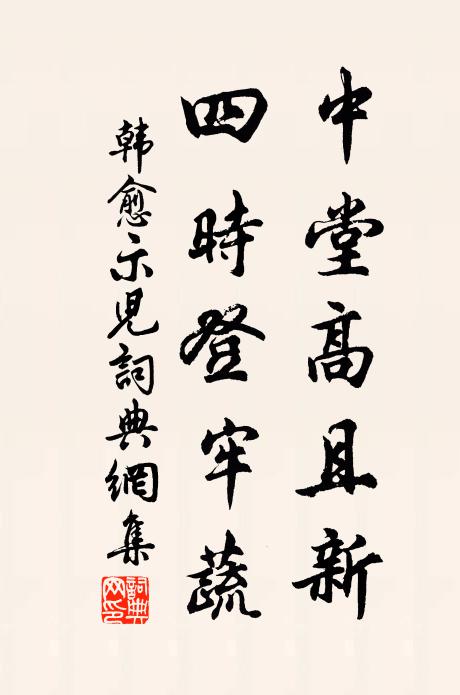 中堂高且新
四時登牢蔬
韓愈示兒詞典網集
詞典網印